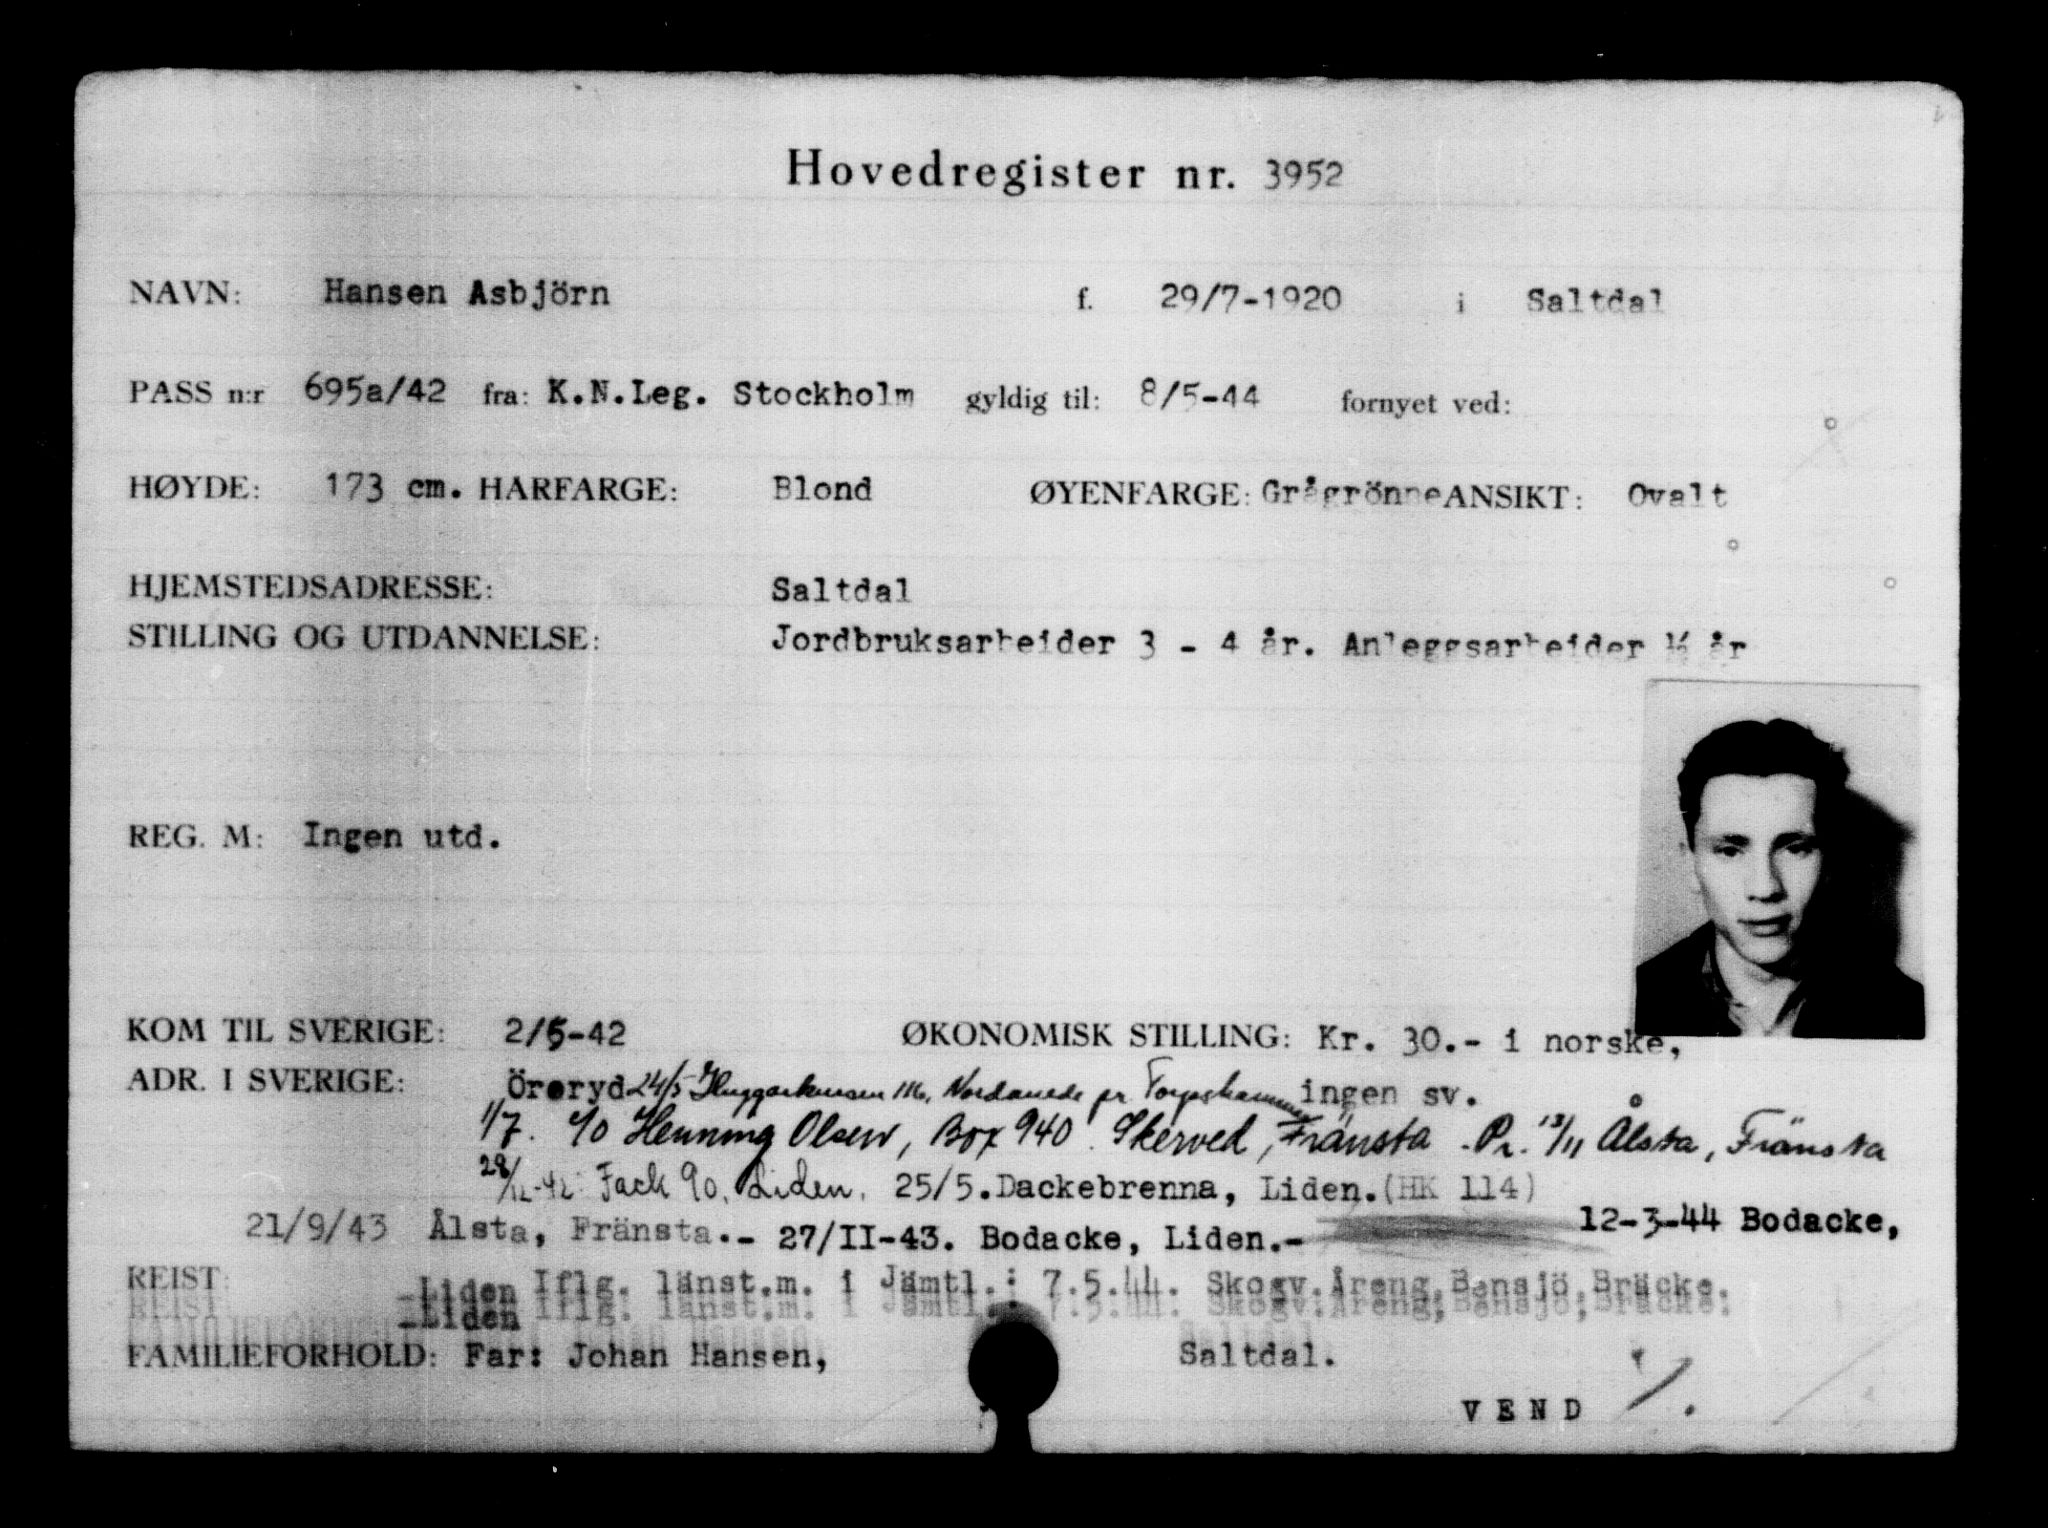 Hovedregister nr. 3952
NAVN: Hansen Asbjörn f. 29/7-1920 i Saltdal
PASS n:r 695a/42 fra: K.N.Leg. Stockholm gyldig til: 8/5-44 fornyet ved:
HØYDE: 173 cm. HARFARGE: Blond ØYENFARGE: Grågrönne ANSIKT: Ovalt
HJEMSTEDSADRESSE: Saltdal
STILLING OG UTDANNELSE: Jordbruksarbeider 3 - 4 år. Anleggsarbeider ½ år
REG. M: Ingen utd.
KOM TIL SVERIGE: 2/5-42 ØKONOMISK STILLING: Kr. 30.- i norske,
ADR. I SVERIGE: Öreryd 24/5 Nordanede pr Torpshammar ingen sv.
1/7. c/o Henning Olsen, Box 940. Skerved, Fränsta. Pr. 13/11 Ålsta, Fränsta
28/12-42: Fack 90, Liden. 25/5. Dackebrenna, Liden. (HK 114)
21/9/43 Ålsta, Fränsta.- 27/II-43. Bodacke, Liden.- 12-3-44 Bodacke,
REIST: Liden Iflg. länst.m. i Jämtl.: 7.5.44. Skogv.Åreng,Bensjö,Bräcke.
FAMILIEFORHOLD: Far: Johan Hansen, Saltdal.
VEND